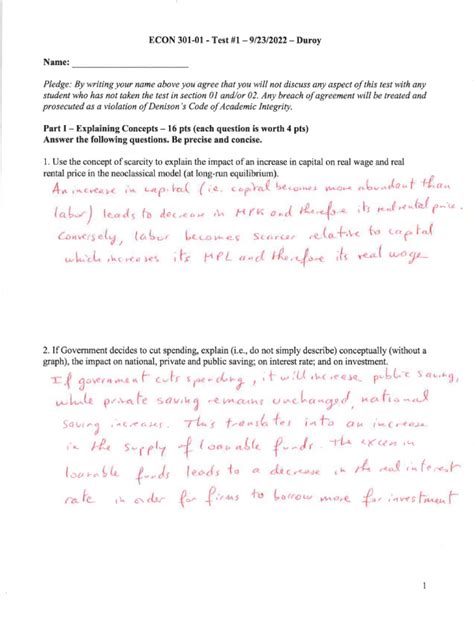 ECON 301-01 - Test #1 – 9/23/2022 – Duroy
Name: ____________________
Pledge: By writing your name above you agree that you will not discuss any aspect of this test with any
student who has not taken the test in section 01 and/or 02. Any breach of agreement will be treated and
prosecuted as a violation of Denison's Code of Academic Integrity.
Part I – Explaining Concepts – 16 pts (each question is worth 4 pts)
Answer the following questions. Be precise and concise.
1. Use the concept of scarcity to explain the impact of an increase in capital on real wage and real
rental price in the neoclassical model (at long-run equilibrium).
An increase in capital (i.e. capital becomes more abundant than
labor) leads to decrease in MPK and therefore its real rental price.
Conversely, labor becomes scarcer relative to capital
which increases its MPL and therefore its real wage.
2. If Government decides to cut spending, explain (i.e., do not simply describe) conceptually (without a
graph), the impact on national, private and public saving; on interest rate; and on investment.
If government cuts spending, it will increase public saving,
while private saving remains unchanged, national
saving increases. This translates into an increase
in the supply of loanable funds. The excess in
loanable funds leads to a decrease in the real interest
rate in order for firms to borrow more for investment
1